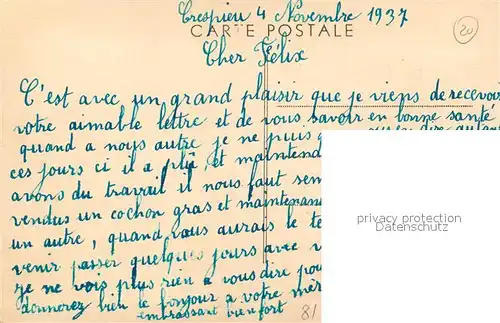 Crespieu 4 Novembre 1937
CARTE POSTALE
20
Cher Félix
C'est avec un grand plaisir que je viens de recevoir
votre aimable lettre et de vous savoir en bonne santé
quand a nous autre je ne puis
ces jours ci il a plu, et maintend
avons du travail il nous faut sem
vendus un cochon gras et maintenan
un autre, quand vous aurais le te
venir passer quelques jours avec
je ne vois plus rien a vous dire pou
donnerez bien le bonjour a votre mèr
embrassant bien fort
81
privacy protection
Datenschutz